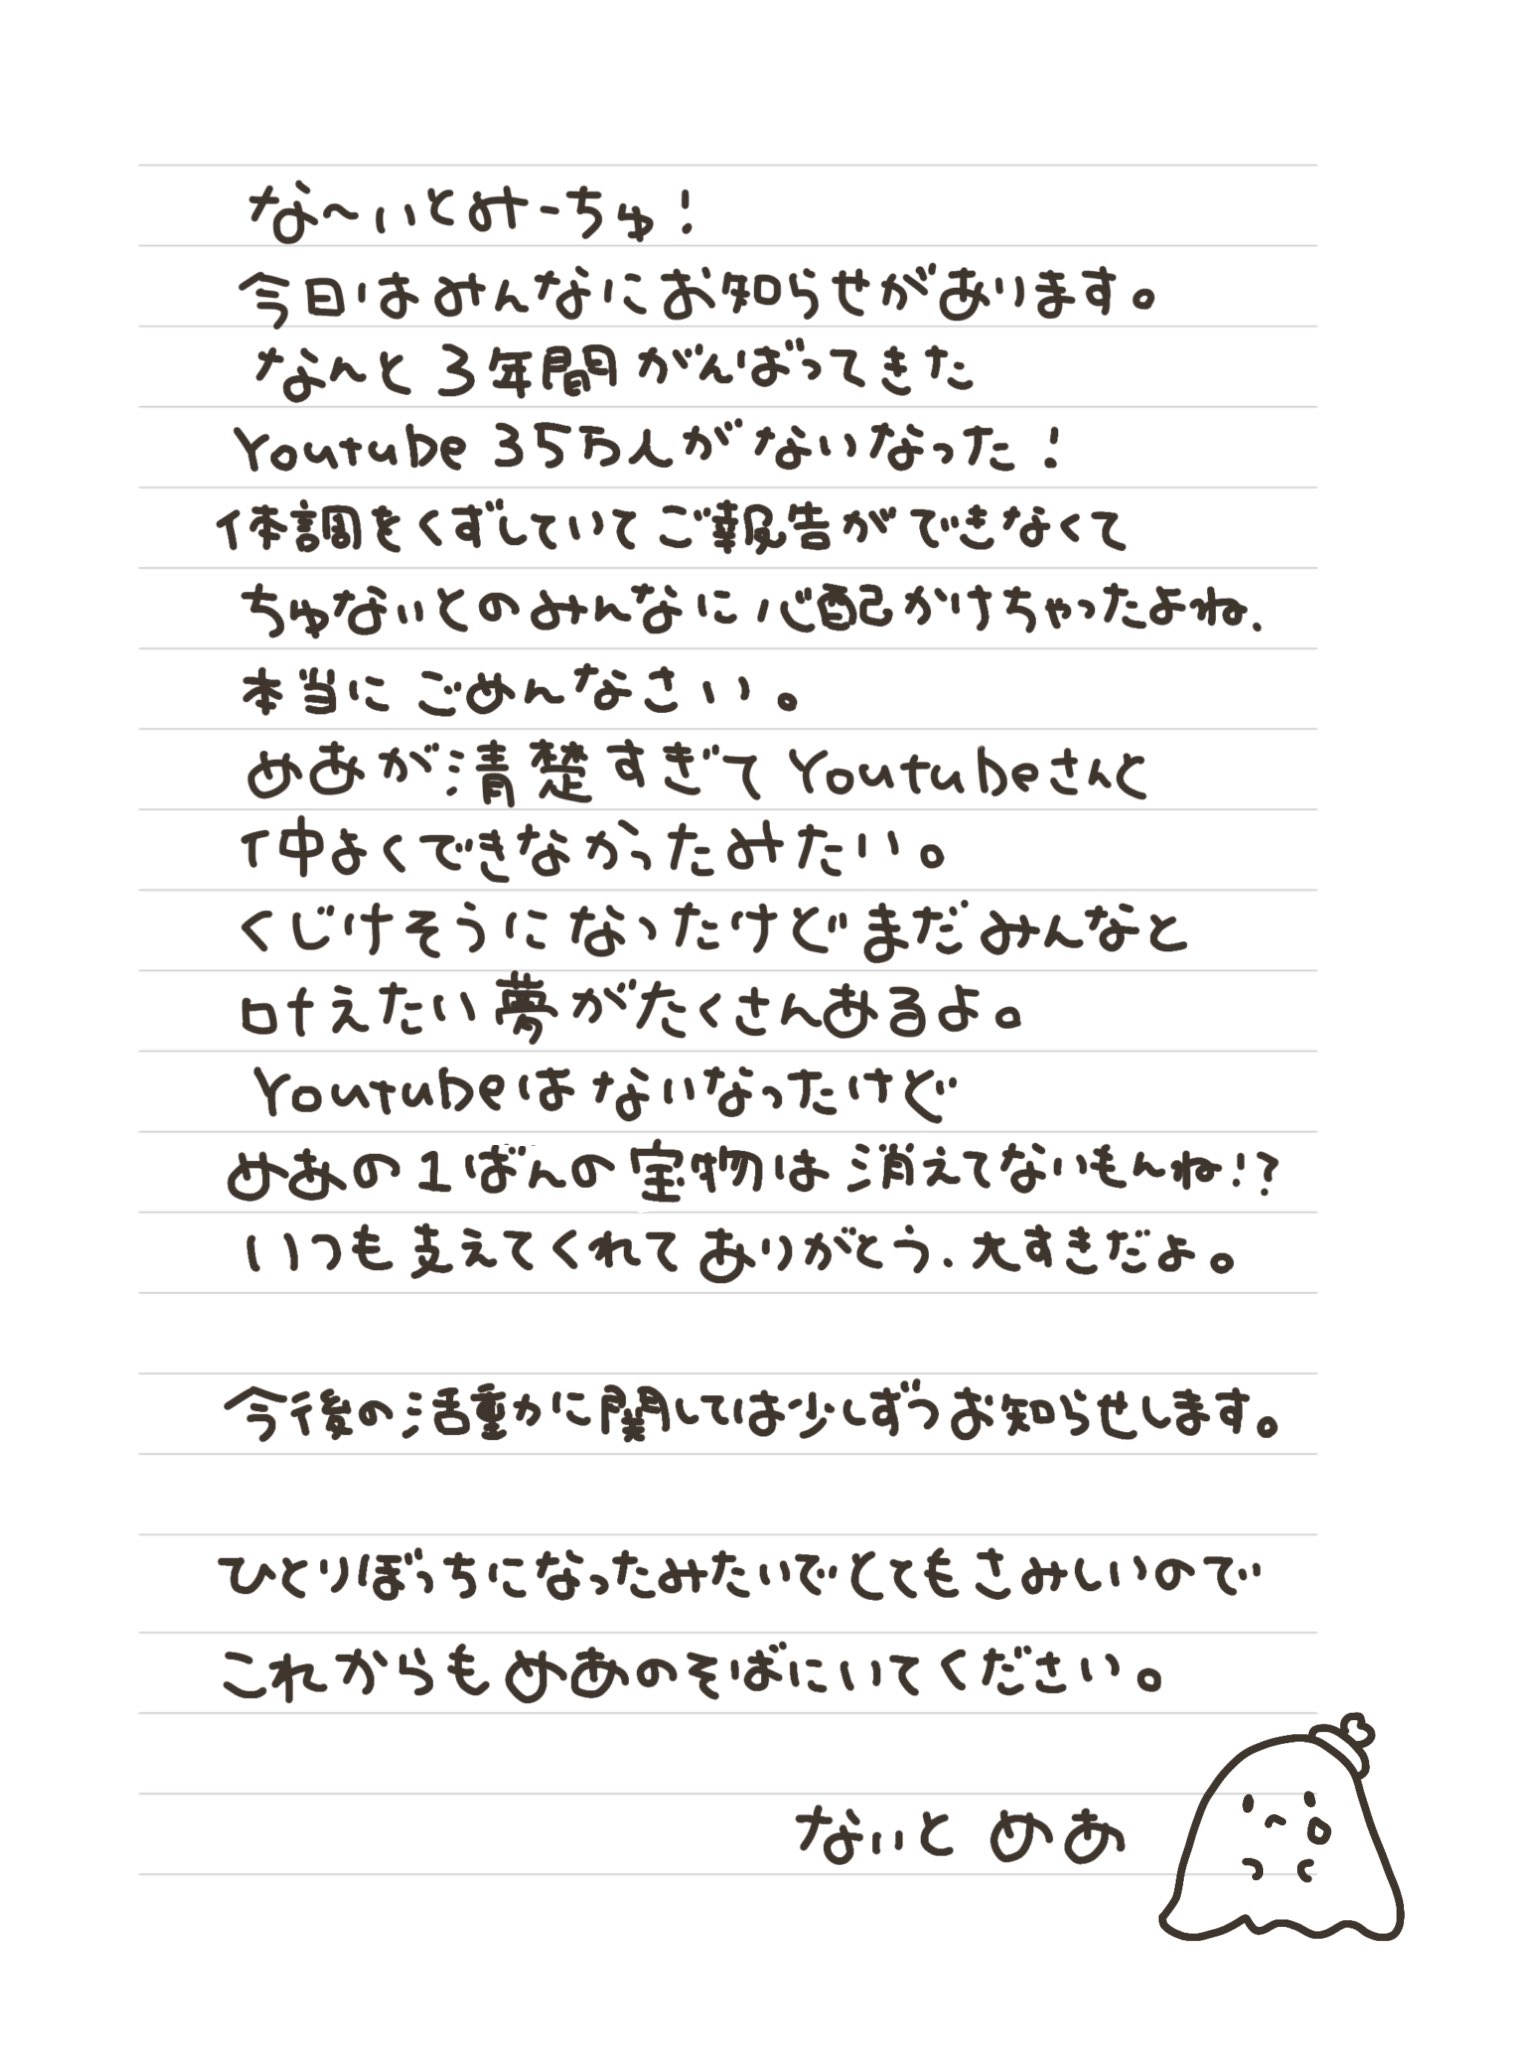 な～ぃとみーちゅ！
今日はみんなにお知らせがあります。
なんと3年間がんばってきた
Youtube 35万人がないなった！
体調をくずしていてご報告ができなくて
ちゅないとのみんなに心配かけちゃったよね、
本当にごめんなさい。
めあが清楚すぎてYoutubeさんと
仲よくできなかったみたい。
くじけそうになったけどまだみんなと
叶えたい夢がたくさんあるよ。
Youtubeはないなったけど
めあの1ばんの宝物は消えてないもんね！？
いつも支えてくれてありがとう、大すきだよ。
今後の活動に関しては少しずつお知らせします。
ひとりぼっちになったみたいでとてもさみしいので
これからもめあのそばにいてください。
ないと めあ